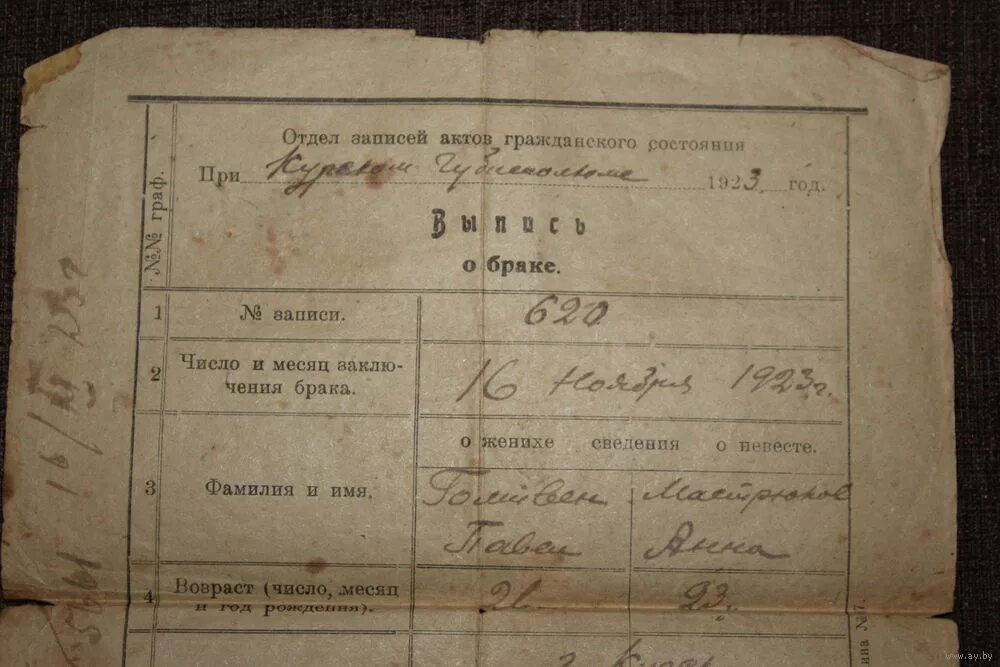 Отдел записей актов гражданского состояния
При Курском Губисполкоме 1923. год.
Выпись
о браке.
№№ граф.
1 № записи. 620
2 Число и месяц заключения брака. 16 Ноября 1923г.
о женихе сведения о невесте.
3 Фамилия и имя.
Мастрюков
Павел Анна
4 Возраст (число, месяц
и год рождения). 23.
г. Курск
www.ay.by